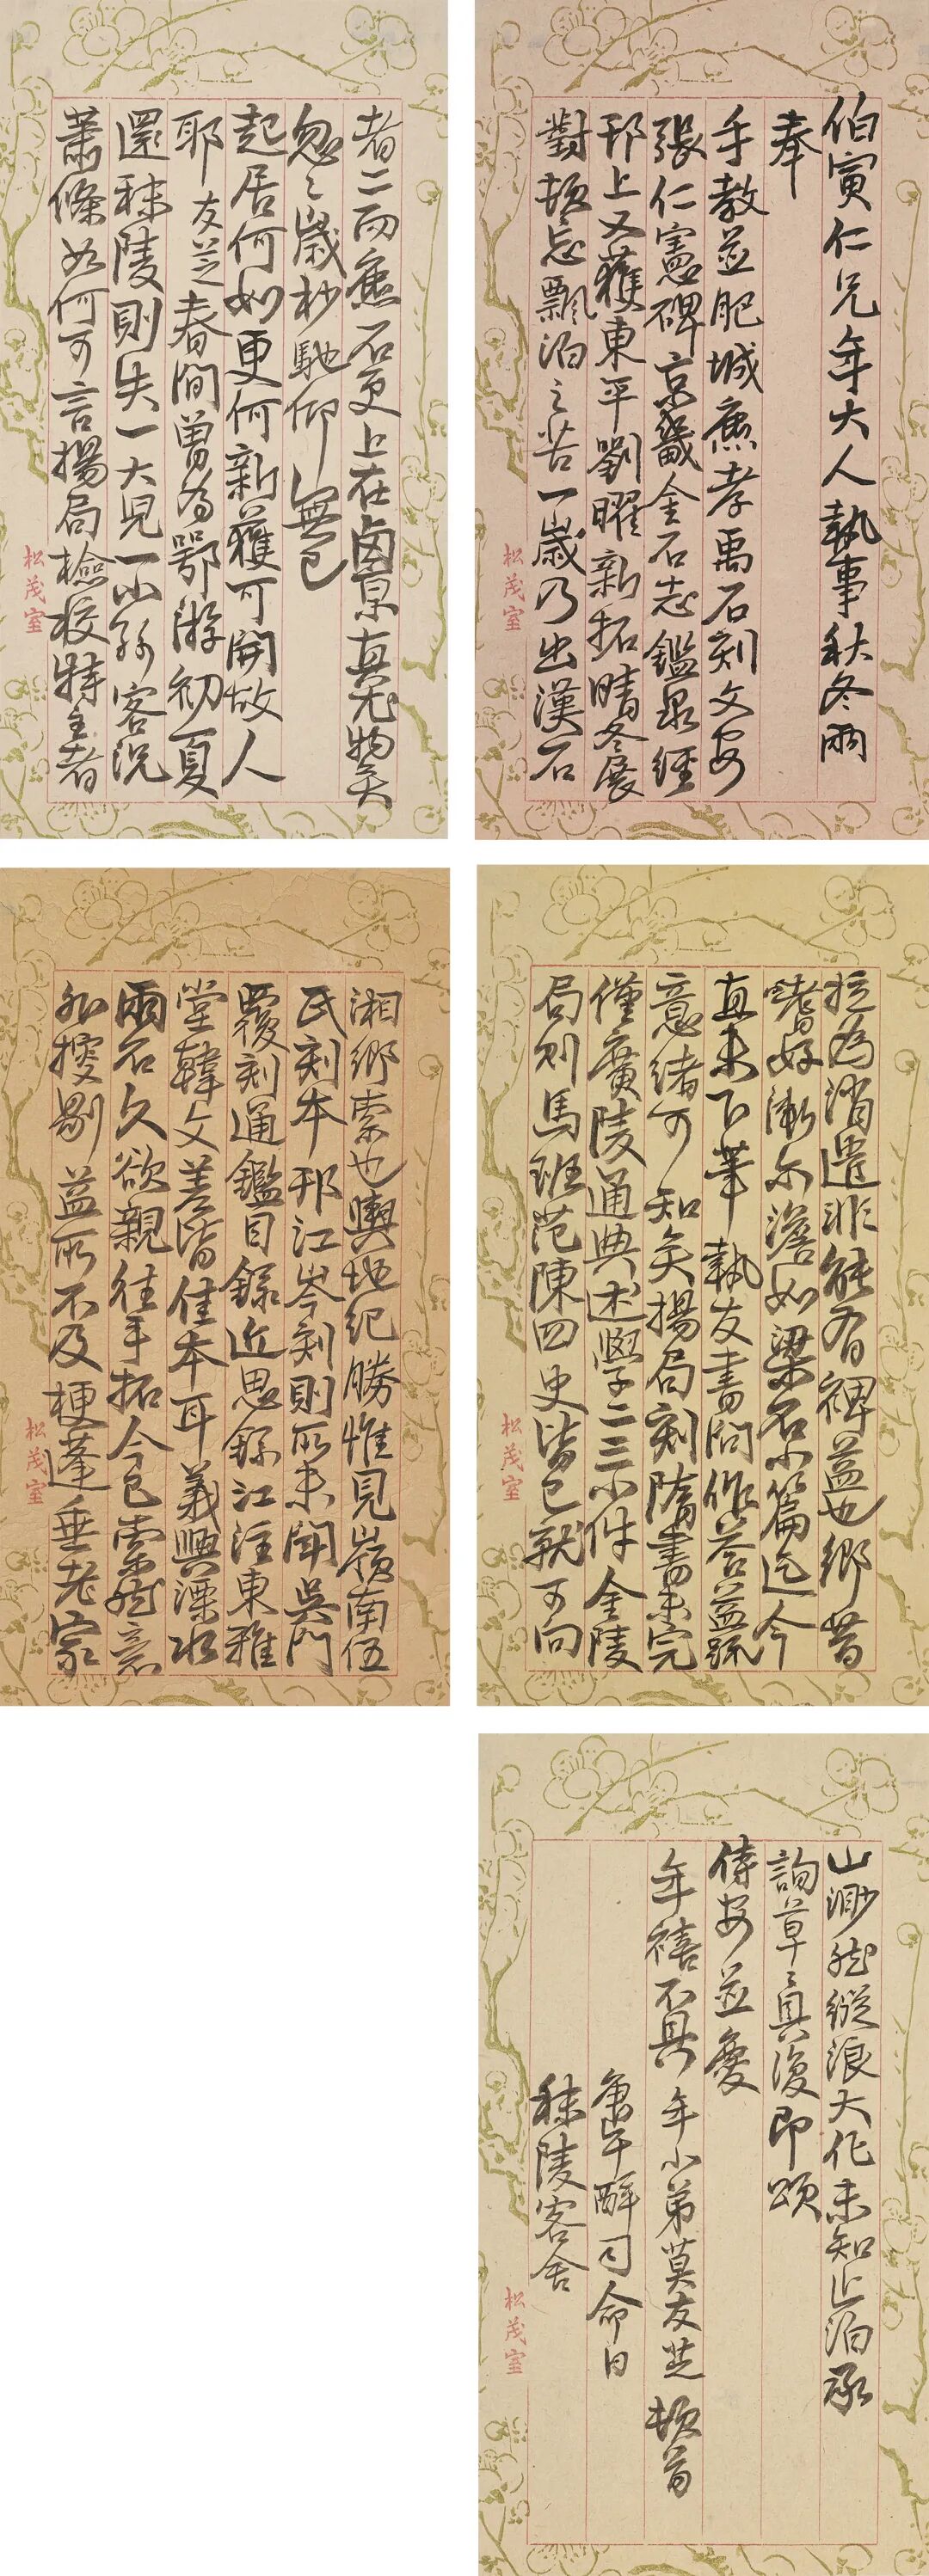 伯寅仁兄年大人執事秋冬兩
奉
手教並肥城膚孝禹石刻文安
張仁憲碑京畿金石志鑑泉經
邗上又獲東平劉曜新拓晴冬展
對頓忘飄泊之苦一歲乃出漢石
松茂室
者二而膚石更上在鹵泉真尤物矣
忽之歲杪馳仰無已
起居何如更何新獲可開故人
耶友芝春間曾為鄂游初夏
還秣陵則失一大兒一小孫客況
蕭條如何可言揚局檢校特主者
松茂室
拉為消遣非能有裨益也鄉昔
嗜好漸亦澹如梁石小篇迄今
真未下筆執友書問作答益疏
意緒可知矣揚局刻隋書未完
僅廣陵通典述學二三小件金陵
局則馬班范陳四史皆已就可向
松茂室
湘鄉索也輿地紀勝惟見嶺南伍
氏刻本邗江岑刻則所未聞吳門
覆刻通鑑目錄近思錄江注東雅
堂韓文差皆佳本耳義興溧水
兩石久欲親往手拓今已索然意
外搜剔益所不及梗蓬垂老家
松茂室
山渺然縱浪大化未知止泊承
詢草草具復即頌
侍安並慶
年禧不具 年小弟莫友芝頓首
庚午醉司命日
秣陵客舍
松茂室